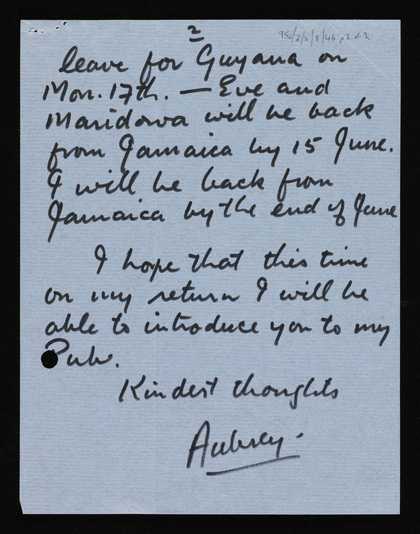 2
leave for Guyana on
Mon. 17th. — Eve and
Maridowa will be back
from Jamaica by 15 June.
I will be back from
Jamaica by the end of June
I hope that this time
on my return I will be
able to introduce you to my
Pub.
Kindest thoughts
Aubrey.